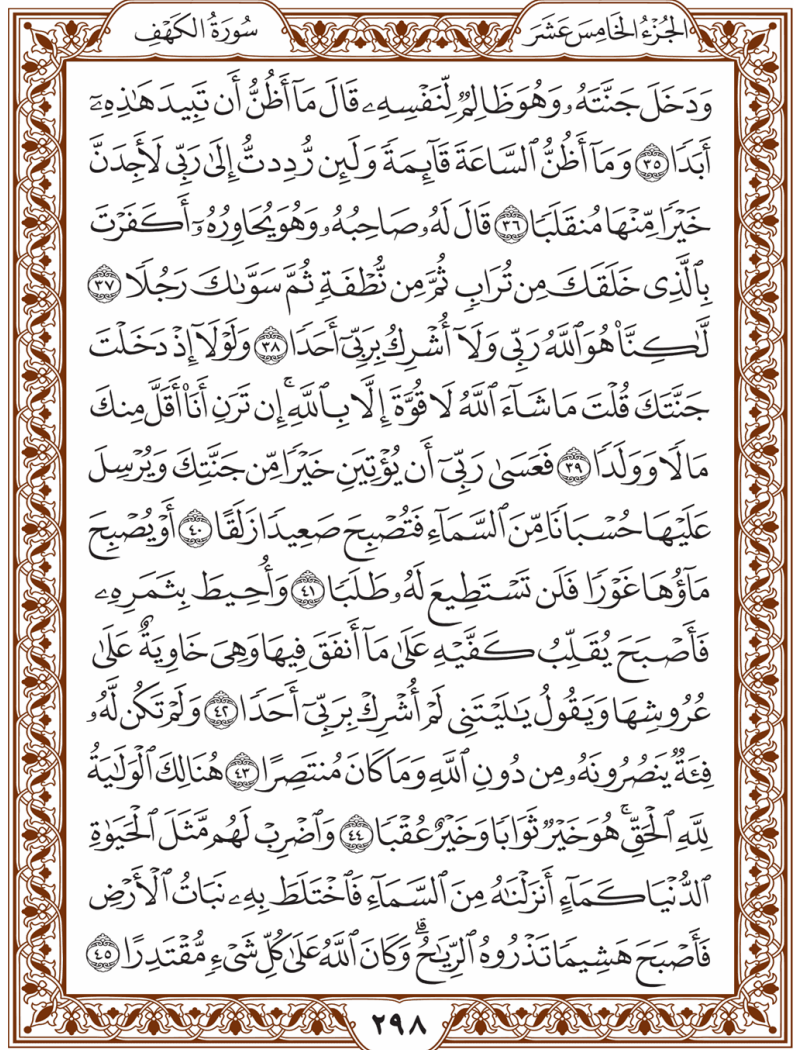 الجُزْءُ الخَامِسَ عَشَرَ
سُورَةُ الكَهْفِ
وَدَخَلَ جَنَّتَهُۥ وَهُوَ ظَالِمٌ لِّنَفْسِهِۦ قَالَ مَآ أَظُنُّ أَن تَبِيدَ هَـٰذِهِۦٓ
أَبَدًا ٣٥ وَمَآ أَظُنُّ ٱلسَّاعَةَ قَآئِمَةً وَلَئِن رُّدِدتُّ إِلَىٰ رَبِّى لَأَجِدَنَّ
خَيْرًا مِّنْهَا مُنقَلَبًا ٣٦ قَالَ لَهُۥ صَاحِبُهُۥ وَهُوَ يُحَاوِرُهُۥٓ أَكَفَرْتَ
بِٱلَّذِى خَلَقَكَ مِن تُرَابٍ ثُمَّ مِن نُّطْفَةٍ ثُمَّ سَوَّىٰكَ رَجُلًا ٣٧
لَّـٰكِنَّا۠ هُوَ ٱللَّهُ رَبِّى وَلَآ أُشْرِكُ بِرَبِّىٓ أَحَدًا ٣٨ وَلَوْلَآ إِذْ دَخَلْتَ
جَنَّتَكَ قُلْتَ مَا شَآءَ ٱللَّهُ لَا قُوَّةَ إِلَّا بِٱللَّهِۚ إِن تَرَنِ أَنَا۠ أَقَلَّ مِنكَ
مَالًا وَوَلَدًا ٣٩ فَعَسَىٰ رَبِّىٓ أَن يُؤْتِيَنِ خَيْرًا مِّن جَنَّتِكَ وَيُرْسِلَ
عَلَيْهَا حُسْبَانًا مِّنَ ٱلسَّمَآءِ فَتُصْبِحَ صَعِيدًا زَلَقًا ٤٠ أَوْ يُصْبِحَ
مَآؤُهَا غَوْرًا فَلَن تَسْتَطِيعَ لَهُۥ طَلَبًا ٤١ وَأُحِيطَ بِثَمَرِهِۦ
فَأَصْبَحَ يُقَلِّبُ كَفَّيْهِ عَلَىٰ مَآ أَنفَقَ فِيهَا وَهِىَ خَاوِيَةٌ عَلَىٰ
عُرُوشِهَا وَيَقُولُ يَـٰلَيْتَنِى لَمْ أُشْرِكْ بِرَبِّىٓ أَحَدًا ٤٢ وَلَمْ تَكُن لَّهُۥ
فِئَةٌ يَنصُرُونَهُۥ مِن دُونِ ٱللَّهِ وَمَا كَانَ مُنتَصِرًا ٤٣ هُنَالِكَ ٱلْوَلَـٰيَةُ
لِلَّهِ ٱلْحَقِّۚ هُوَ خَيْرٌ ثَوَابًا وَخَيْرٌ عُقْبًا ٤٤ وَٱضْرِبْ لَهُم مَّثَلَ ٱلْحَيَوٰةِ
ٱلدُّنْيَا كَمَآءٍ أَنزَلْنَـٰهُ مِنَ ٱلسَّمَآءِ فَٱخْتَلَطَ بِهِۦ نَبَاتُ ٱلْأَرْضِ
فَأَصْبَحَ هَشِيمًا تَذْرُوهُ ٱلرِّيَـٰحُۗ وَكَانَ ٱللَّهُ عَلَىٰ كُلِّ شَىْءٍ مُّقْتَدِرًا ٤٥
٢٩٨